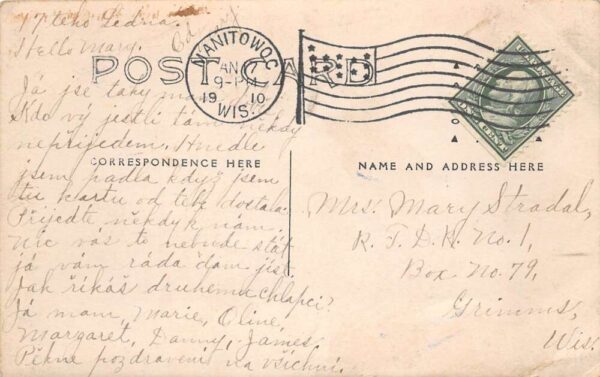 Hello Mary.
Já jse taky
Kdo vý jestli tám někdy
nepřijedem. Hnedle
jsem padla když jsem
tu kartu od tebe dostala.
Přijedte někdy k nám.
Nic vás to nebude stát
já vám ráda dám jíst.
Jak říkáš druhemu chlapci?
Já mam, Marie, Oline,
Margaret, Danny, James.
Pěkne pozdravení na všichni.
POST CARD
MANITOWOC
JAN 7
9-PM
1910
WIS.
CORRESPONDENCE HERE
NAME AND ADDRESS HERE
Mrs. Mary Stradal,
R.F.D. No. 1,
Box No. 79,
Grimms,
Wis.